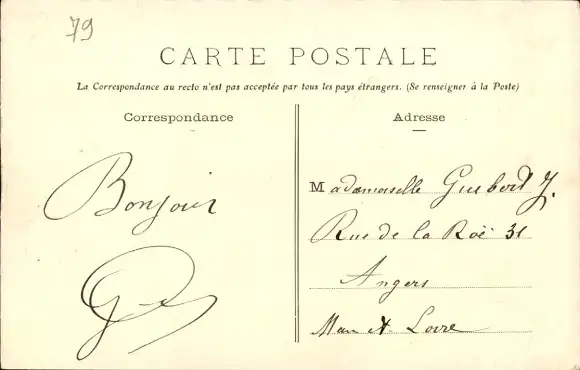 79
CARTE POSTALE
La Correspondance au recto n'est pas acceptée par tous les pays étrangers. (Se renseigner à la Poste)
Correspondance
Adresse
Bonjour
Mademoiselle Guibert J.
Rue de la Roë 31
Angers
Main et Loire